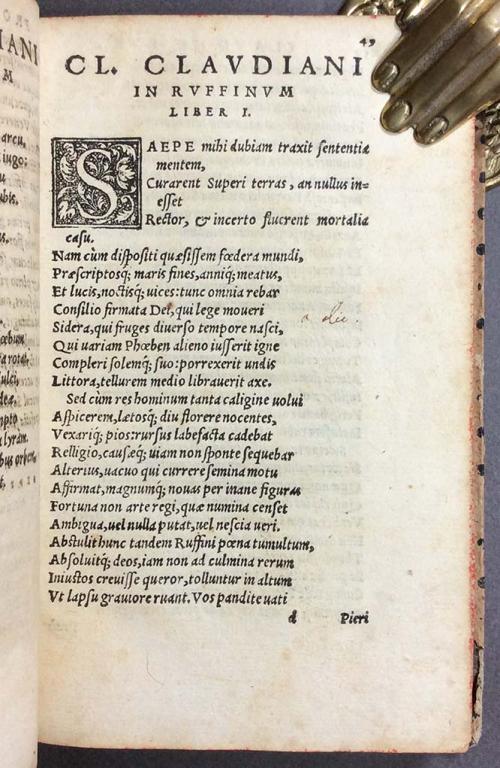 49
CL. CLAVDIANI
IN RVFFINVM
LIBER I.
SAEPE mihi dubiam traxit sententia
mentem,
Curarent Superi terras, an nullus in=
esset
Rector, & incerto fluerent mortalia
casu.
Nam cùm dispositi quæsissem fœdera mundi,
Præscriptosq; maris fines, anniq; meatus,
Et lucis, noctisq; uices: tunc omnia rebar
Consilio firmata Dei, qui lege moueri
Sidera, qui fruges diuerso tempore nasci,
Qui uariam Phœben alieno iusserit igne
Compleri solemq; suo: porrexerit undis
Littora, tellurem medio librauerit axe.
Sed cùm res hominum tanta caligine uolui
Aspicerem, lætosq; diu florere nocentes,
Vexariq; pios: rursus labefacta cadebat
Relligio, causæq; uiam non sponte sequebar
Alterius, uacuo qui currere semina motu
Affirmat, magnumq; nouas per inane figuras
Fortuna non arte regi, quæ numina censet
Ambigua, uel nulla putat, uel nescia ueri.
Abstulit hunc tandem Ruffini pœna tumultum,
Absoluitq; deos, iam non ad culmina rerum
Iniustos creuisse queror, tolluntur in altum
Vt lapsu grauiore ruant. Vos pandite uati
d Pieri